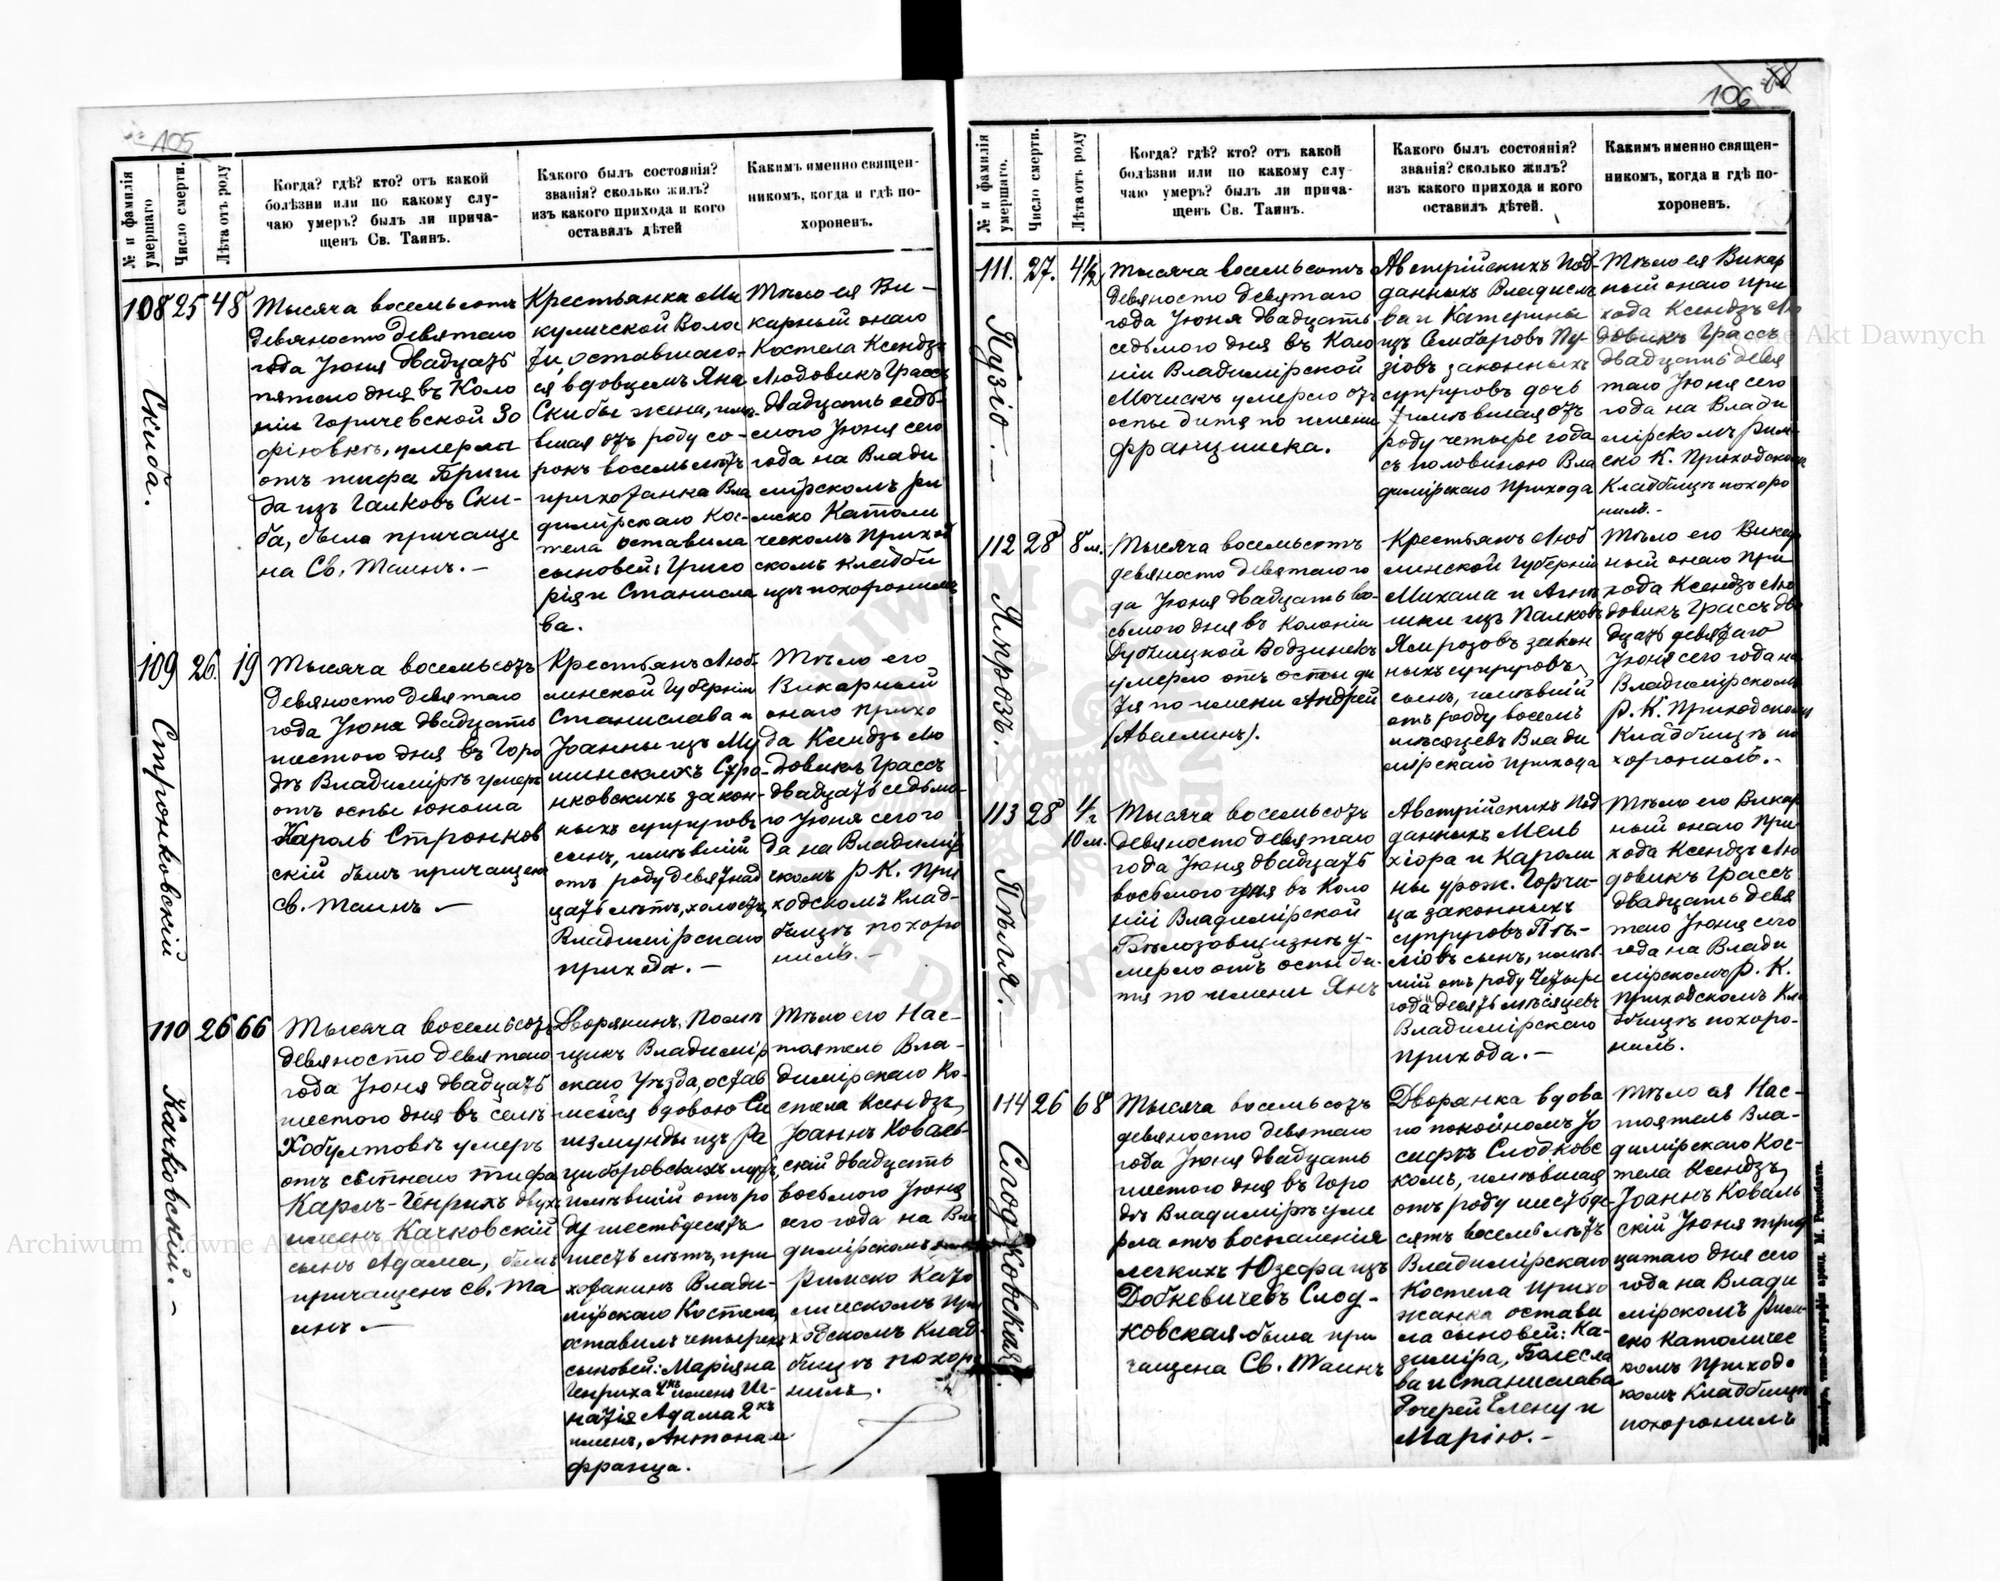 105
№ и фамилія умершаго
Число смерти.
Лѣта отъ роду
Когда? гдѣ? кто? отъ какой
болѣзни или по какому слу-
чаю умеръ? былъ ли прича-
щенъ Св. Таинъ.
Какого былъ состоянія?
званія? сколько жилъ?
изъ какого прихода и кого
оставилъ дѣтей
Какимъ именно священ-
никомъ, когда и гдѣ по-
хороненъ.
108 25 48
Скиба.
Тысяча восемьсотъ
девяносто девятаго
года Іюня двадцать
пятаго дня въ Коло
ніи Горичевской Зо
фіювкѣ, умерла
отъ тифа Бриги
да изъ Галковъ Ски-
ба, была причаще
на Св. Таинъ. –
Крестьянка Ми
куличской Волос
ти, оставшаго-
ся вдовцемъ Яна
Скибы жена, имѣ-
вшая отъ роду со-
рокъ восемь лѣтъ
прихожанка Вла
димірскаго Кос-
тела оставила
сыновей: Григо
рія и Станисла
ва.
Тѣло ея Ви-
карный онаго
Костела Ксендзъ
Людовикъ Грассъ
двадцать седь-
маго Іюня сего
года на Влади
мірскомъ Ри
мско Католи
ческомъ Приход
скомъ кладби
щѣ похоронилъ
109 26. 19
Стронковскій
Тысяча восемьсотъ
девяносто девятаго
года Іюня двадцать
шестого дня въ Горо
дѣ Владимірѣ умеръ
отъ оспы юноша
Кароль Стронков
скій былъ причащенъ
Св. Таинъ –
Крестьянъ Люб-
линской Губерніи
Станислава и
Іоанны изъ Му
шинскихъ Стро-
нковскихъ закон-
ныхъ супруговъ
сынъ, имѣвшій
отъ роду девятнад
цать лѣтъ, холостъ,
Владимірскаго
прихода. –
Тѣло его
Викарный
онаго прихо
да Ксендзъ Лю
довикъ Грассъ
двадцать седьма-
го Іюня сего го
да на Владимір
скомъ Р. К. При
ходскомъ клад-
бищѣ похоро
нилъ. –
110 26 66
Качковскій. –
Тысяча восемьсотъ
девяносто девятаго
года Іюня двадцать
шестого дня въ селѣ
Хобултовѣ умеръ
отъ сыпнаго тифа
Карлъ-Генрихъ двухъ
именъ Качковскій
сынъ Адама, былъ
причащенъ Св. Та
инъ –
Дворянинъ, Помѣ
щикъ Владимір
скаго Уѣзда, остав
шейся вдовою Си
гизмунды изъ Ра
циборовскихъ мужъ,
имѣвшій отъ ро
ду шестьдесятъ
шесть лѣтъ, при
хожанинъ Влади-
мірскаго Костела,
оставилъ четырехъ
сыновей: Маріяна
Генриха 2хъ именъ Иг-
натія Адама 2хъ
именъ, Антона и
Франца.
Тѣло его Нас-
тоятель Вла-
димірскаго Ко-
стела Ксендзъ
Іоаннъ Коваль-
скій двадцать
восьмого Іюня
сего года на Вла
димірскомъ
Римско Като
лическомъ При
ходскомъ Клад-
бищѣ похоро
нилъ.
106
№ и фамилія умершаго.
Число смерти.
Лѣта отъ роду
Когда? гдѣ? кто? отъ какой
болѣзни или по какому слу
чаю умеръ? былъ ли прича-
щенъ Св. Таинъ.
Какого былъ состоянія?
званія? сколько жилъ?
изъ какого прихода и кого
оставилъ дѣтей.
Какимъ именно священ-
никомъ, когда и гдѣ по-
хороненъ.
111. 27. 4½
Пузіо. –
Тысяча восемьсотъ
девяносто девятаго
года Іюня двадцать
седьмого дня въ Коло
ніи Владимірской
Мочискъ умерло отъ
оспы дитя по имени
Франциска.
Австрійскихъ Под-
данныхъ Владисла
ва и Катерины
изъ Самборовъ Пу-
зіовъ законныхъ
супруговъ дочь
имѣвшая отъ
роду четыре года
съ половиною Вла
димірскаго Прихода
Тѣло ея Викар
ный онаго При
хода Ксендзъ Лю
довикъ Грассъ
двадцать девя
таго Іюня сего
года на Влади
мірскомъ Рим-
ско К. Приходскомъ
Кладбищѣ похоро
нилъ. –
112 28 8 м.
Ямрозъ. –
Тысяча восемьсотъ
девяносто девятаго го
да Іюня двадцать во-
сьмого дня въ Колоніи
Дубницкой Водзинекъ
умерло отъ оспы ди
тя по имени Андрей
(Авелинъ).
Крестьянъ Люб
линской Губерніи
Михала и Агнѣ
шки изъ Палковъ
Ямрозовъ закон
ныхъ супруговъ
сынъ, имѣвшій
отъ роду восемь
мѣсяцевъ Влади
мірскаго прихода
Тѣло его Викар
ный онаго При
хода Ксендзъ Лю
довикъ Грассъ два
дцать девятаго
Іюня сего года на
Владимірскомъ
Р. К. Приходскомъ
Кладбищѣ по
хоронилъ. –
113 28 4 г 10 м.
Пѣля. –
Тысяча восемьсотъ
девяносто девятаго
года Іюня двадцать
восьмого дня въ Коло
ніи Владимірской
Бѣлозовщизнѣ у-
мерло отъ оспы ди-
тя по имени Янъ
Австрійскихъ Под
данныхъ Мель
хіора и Кароли
ны урож. Горчи-
ца законныхъ
супруговъ Пѣ-
лювъ сынъ, имѣв-
шій отъ роду Четыре
года и десять мѣсяцевъ
Владимірскаго
прихода. –
Тѣло его Викар
ный онаго При-
хода Ксендзъ Лю
довикъ Грассъ
двадцать девя
таго Іюня сего
года на Влади
мірскомъ Р. К.
Приходскомъ Кла
дбищѣ похоро-
нилъ.
114 26 68
Слодковская.
Тысяча восемьсотъ
девяносто девятаго
года Іюня двадцать
шестого дня въ Горо
дѣ Владимірѣ уме
рла отъ воспаленія
легкихъ Юзефа изъ
Добкевичевъ Слод-
ковская была при
чащена Св. Таинъ
Дворянка вдова
по покойномъ Іо
сифѣ Слодковс
комъ, имѣвшая
отъ роду шестьде-
сятъ восемь лѣтъ
Владимірскаго
Костела прихо
жанка остави
ла сыновей: Ка-
зиміра, Болесла
ва и Станислава
дочерей Елену и
Марію. –
Тѣло ея Нас-
тоятель Вла-
димірскаго Кос-
тела Ксендзъ
Іоаннъ Коваль
скій Іюня трид
цатаго дня сего
года на Влади
мірскомъ Рим-
ско Католичес
комъ Приходс
комъ Кладбищѣ
похоронилъ
Житоміръ, типо-литографія аренд. М. Розенблата.
Archiwum Główne Akt Dawnych